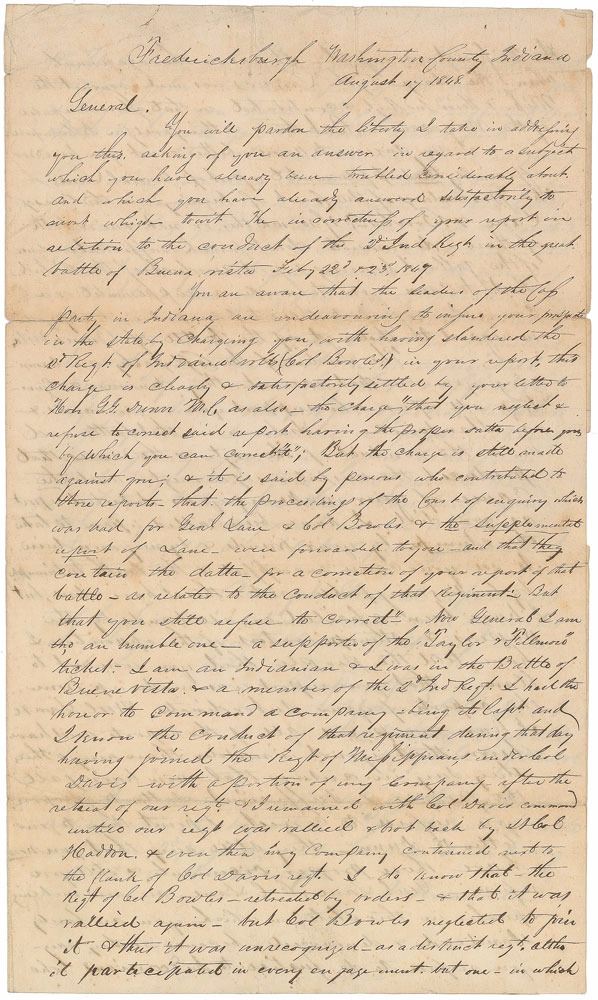 Fredericksburgh Washington County Indiana
August 17 1848.
General.
You will pardon the liberty I take in addressing
you this. asking of you an answer in regard to a subject
which you have already been troubled considerably about
and which you have already answered satisfactorily to
most whigs towit The incorrectness of your report in
relation to the conduct of the 2d Ind Regt in the great
battle of Buena vista Feby 22d & 23d, 1847
You are aware that the leaders of the Cass
Party in Indiana are endeavouring to injure your prospects
in the state by Charging you, with having slandered the
2d Regt of Indiana vols (Col Bowles) in your report, this
charge is clearly & satisfactorily settled by your letter to
Hon G.G. Dunn M.C, as also the Charge, "that you neglect &
refuse to correct said report having the proper datta before you
by which you can correct it"; But the charge is still made
against you; & it is said by persons who contributed to
those reports that the proceedings of the Court of enquiry which
was had for Genl Lane & Col Bowles & the Supplemental
report of Lane were forwarded to you and that they
contain the datta for a correction of your report of that
battle as relates to the conduct of that Regiment "But
that you still refuse to correct" Now General I am
tho an humble one a supporter of the "Taylor & Fillmore"
ticket. I am an Indianian & I was in the Battle of
Buena vista & a member of the 2d Ind Regt. I had the
honor to command a company being its Capt and
I know the conduct of that regiment during that day
having joined the Regt of Missippians under Col
Davis with a portion of my Company after the
retreat of our regt. & I remained with Col Davis command
untill our regt was rallied & brot back by Lt Col
Haddon. & even then my Company continued next to
the flank of Col Davis regt. I do know that the
Regt of Col Bowles retreated by orders & that it was
rallied again but Col Bowles neglected to join
it & thus it was unrecognized as a distinct regt, altho
it participated in every engagement. but one in which